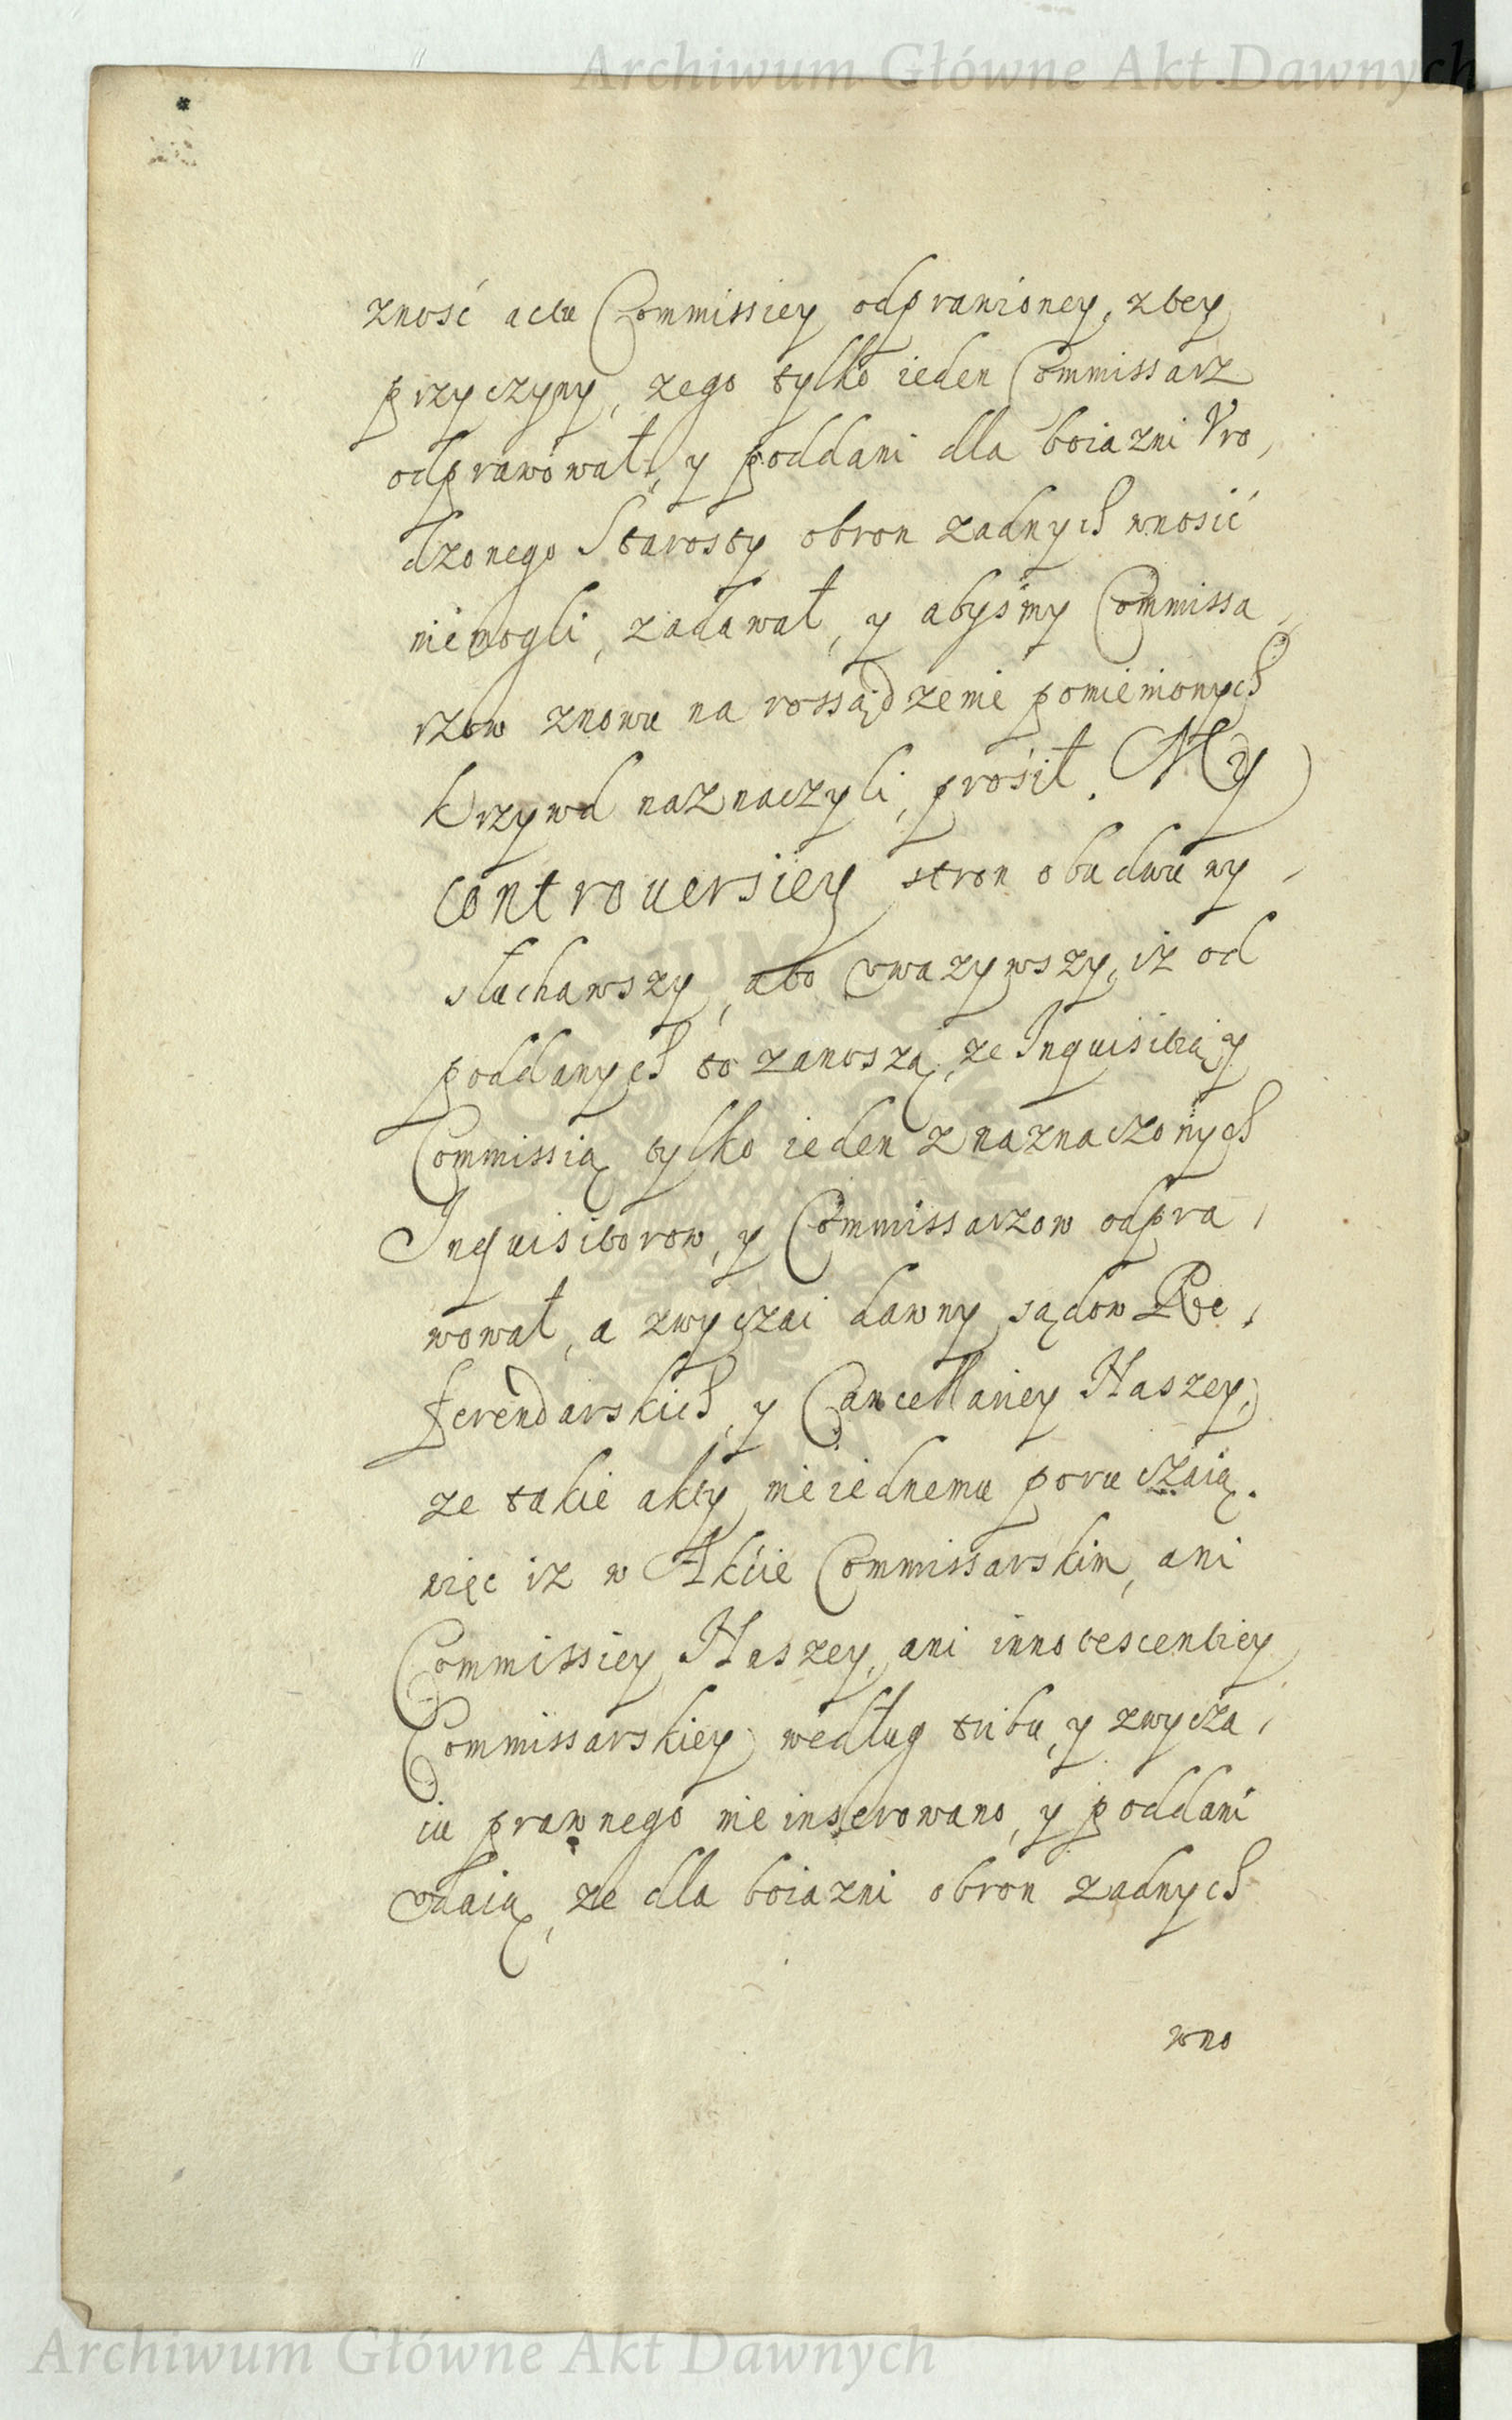 Archiwum Główne Akt Dawnych
zność actu Commissiey odprawioney, z tey
przyczyny, że go tylko ieden Commissarz
odprawował, y poddani dla boiazni Vro,
dzonego Starosty obron żadnych wnosić
niemogli, zadawał, y abyśmy Commissa,
rzow znowu na rossądzenie pomienionych
krzywd naznaczyli, prosił. My
controuersiey stron obudwu wy,
słuchawszy, abo vwazywszy, iz od
poddanych to zanoszą, ze Inquisitią y
Commissią tylko ieden z naznaczonych
Inquisitorow, y Commissarzow odpra,
wował, a zwyczai dawny sądow Re,
ferendarskich, y Cancellariey Naszey,
ze takie akty nie iednemu poruczaią.
więc iz w Akcie Commissarskim, ani
Commissiey Naszey, ani innotescentiey
Commissarskiey według tribu, y zwycza,
iu prawnego nie inserowano, y poddani
vdaią, ze dla boiazni obron zadnych
wno
Archiwum Główne Akt Dawnych